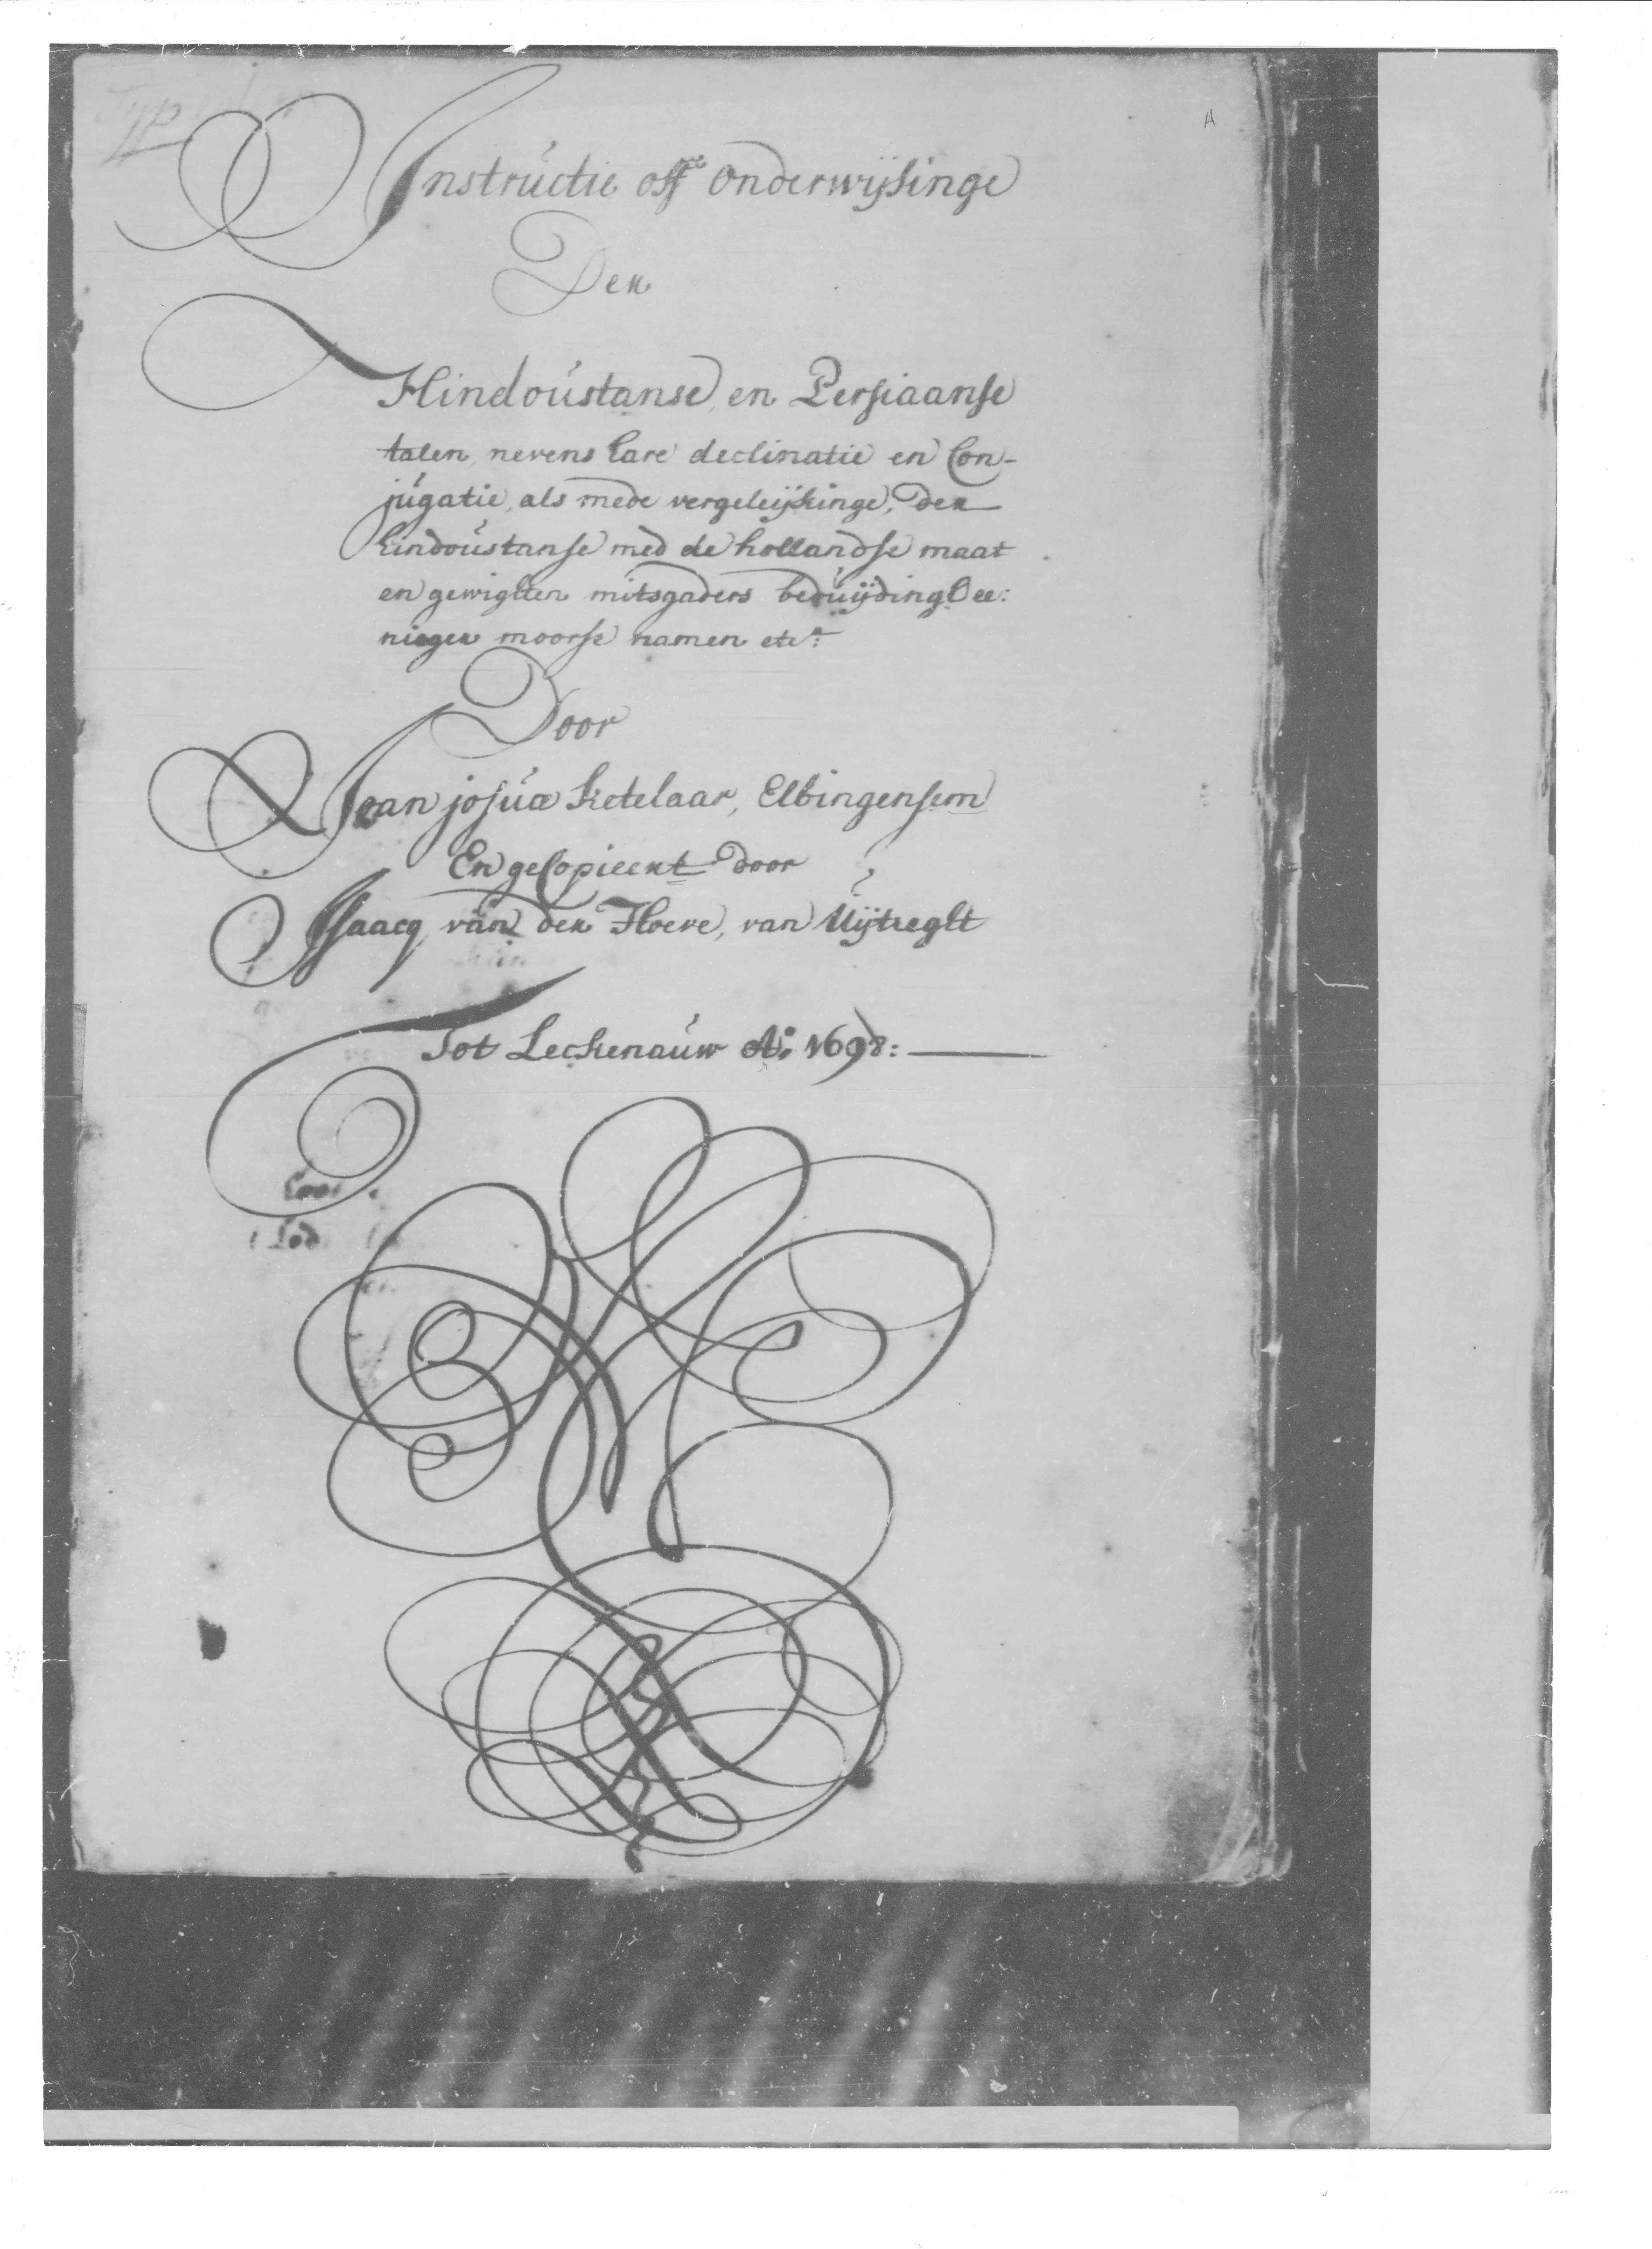 Instructie off onderwijsinge
Der
Hindoustanse en Persiaanse
talen nevens hare declinatie en Con-
jugatie, als mede vergeleijkinge, der
hindoustanse med de hollandse maat
en gewighten mitsgaders beduijdingh ee:
niger moorse namen etc:
Door
Jean josua Ketelaar, Elbingensem
En gecopieert door
Isaacq van der Hoeve, van Uijtreght
Tot Leckenauw Ao 1698: